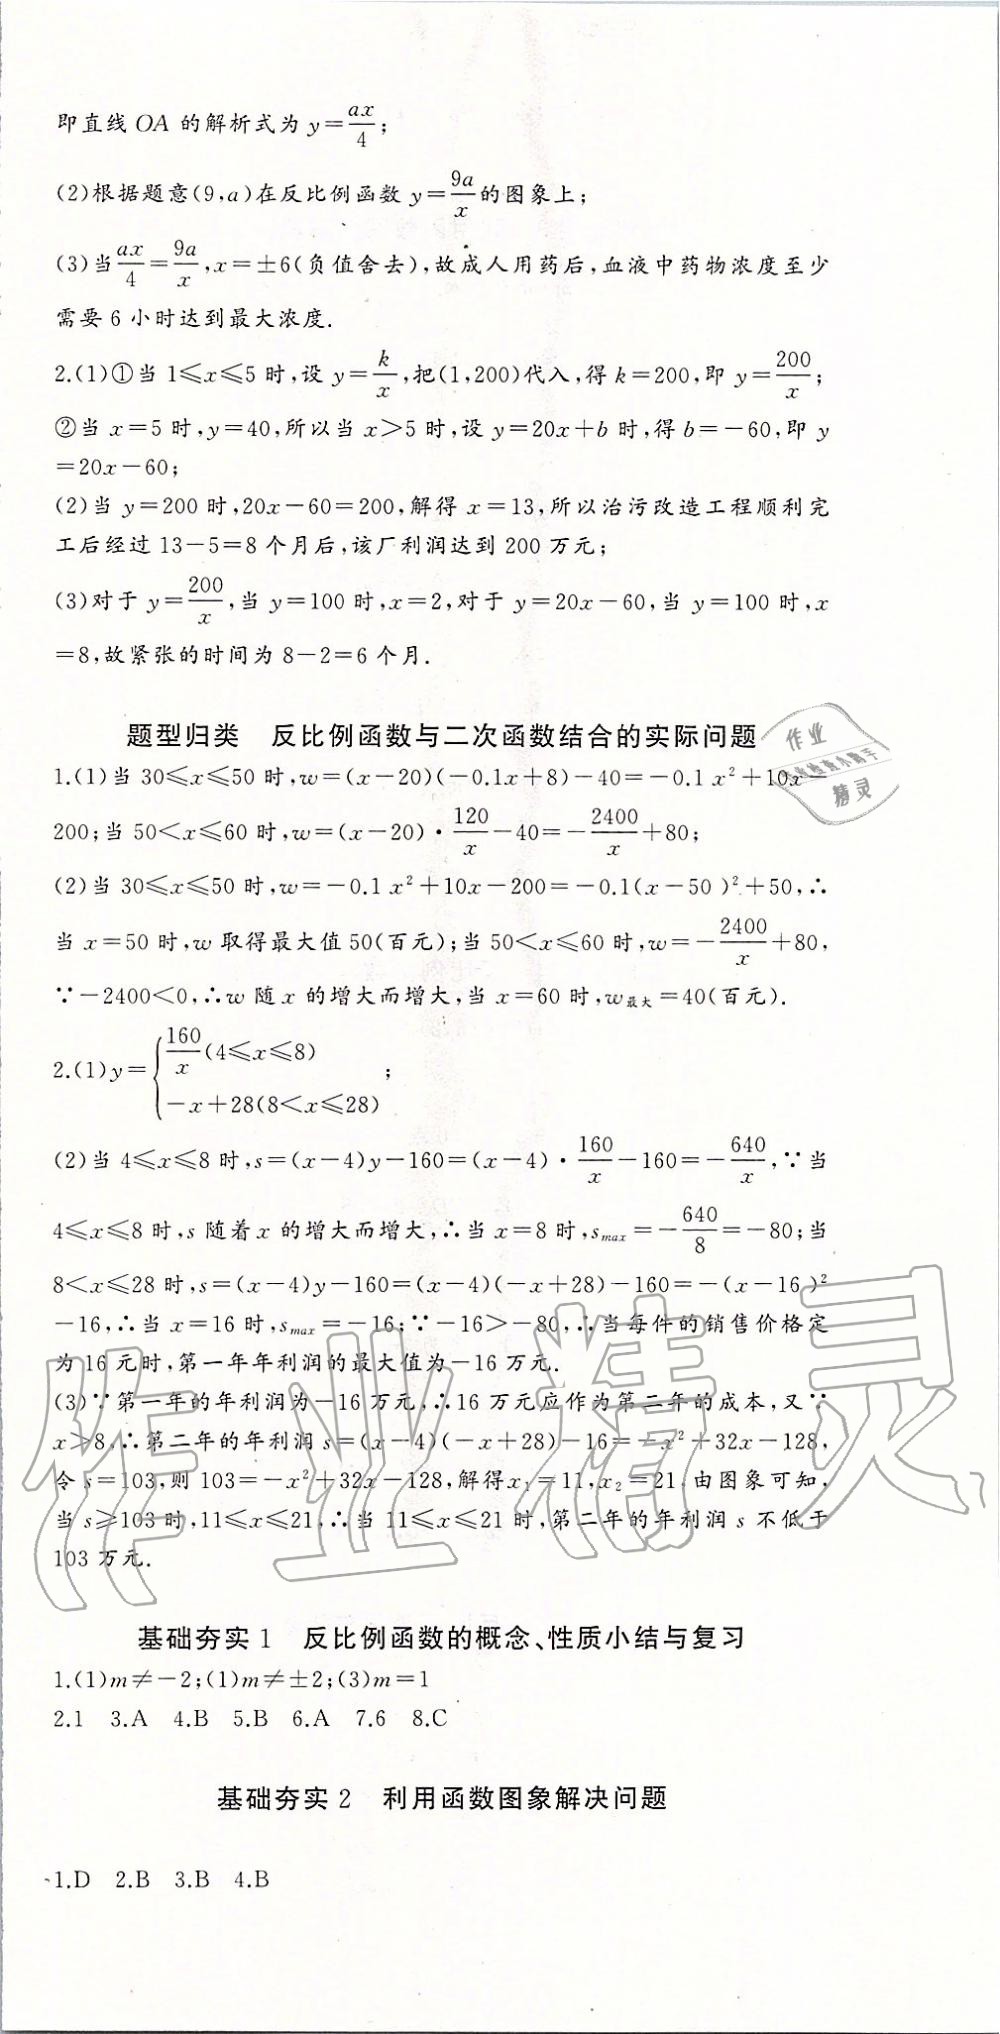 即直线 OA 的解析式为 y=ax/4;
(2)根据题意(9,a)在反比例函数 y=9a/x 的图象上;
(3)当 ax/4=9a/x,x=±6(负值舍去),故成人用药后,血液中药物浓度至少
需要 6 小时达到最大浓度.
2.(1)①当 1≤x≤5 时,设 y=k/x,把(1,200)代入,得 k=200,即 y=200/x;
②当 x=5 时,y=40,所以当 x>5 时,设 y=20x+b 时,得 b=-60,即 y
=20x-60;
(2)当 y=200 时,20x-60=200,解得 x=13,所以治污改造工程顺利完
工后经过 13-5=8 个月后,该厂利润达到 200 万元;
(3)对于 y=200/x,当 y=100 时,x=2,对于 y=20x-60,当 y=100 时,x
=8,故紧张的时间为 8-2=6 个月.
题型归类 反比例函数与二次函数结合的实际问题
1.(1)当 30≤x≤50 时,w=(x-20)(-0.1x+8)-40=-0.1x²+10x-
200;当 50<x≤60 时,w=(x-20)·120/x-40=-2400/x+80;
(2)当 30≤x≤50 时,w=-0.1x²+10x-200=-0.1(x-50)²+50,∴
当 x=50 时,w 取得最大值 50(百元);当 50<x≤60 时,w=-2400/x+80,
∵-2400<0,∴w 随 x 的增大而增大,当 x=60 时,w最大=40(百元).
2.(1)y={160/x(4≤x≤8)
-x+28(8<x≤28);
(2)当 4≤x≤8 时,s=(x-4)y-160=(x-4)·160/x-160=-640/x,∵当
4≤x≤8 时,s 随着 x 的增大而增大,∴当 x=8 时,smax=-640/8=-80;当
8<x≤28 时,s=(x-4)y-160=(x-4)(-x+28)-160=-(x-16)²
-16,∴当 x=16 时,smax=-16;∵-16>-80,∴当每件的销售价格定
为 16 元时,第一年年利润的最大值为-16 万元.
(3)∵第一年的年利润为-16 万元,∴16 万元应作为第二年的成本,又∵
x>8,∴第二年的年利润 s=(x-4)(-x+28)-16=-x²+32x-128,
令 s=103,则 103=-x²+32x-128,解得 x₁=11,x₂=21,由图象可知,
当 s≥103 时,11≤x≤21,∴当 11≤x≤21 时,第二年的年利润 s 不低于
103 万元.
基础夯实 1 反比例函数的概念、性质小结与复习
1.(1)m≠-2;(1)m≠±2;(3)m=1
2.1 3.A 4.B 5.B 6.A 7.6 8.C
基础夯实 2 利用函数图象解决问题
1.D 2.B 3.B 4.B
作业
精灵
作业精灵